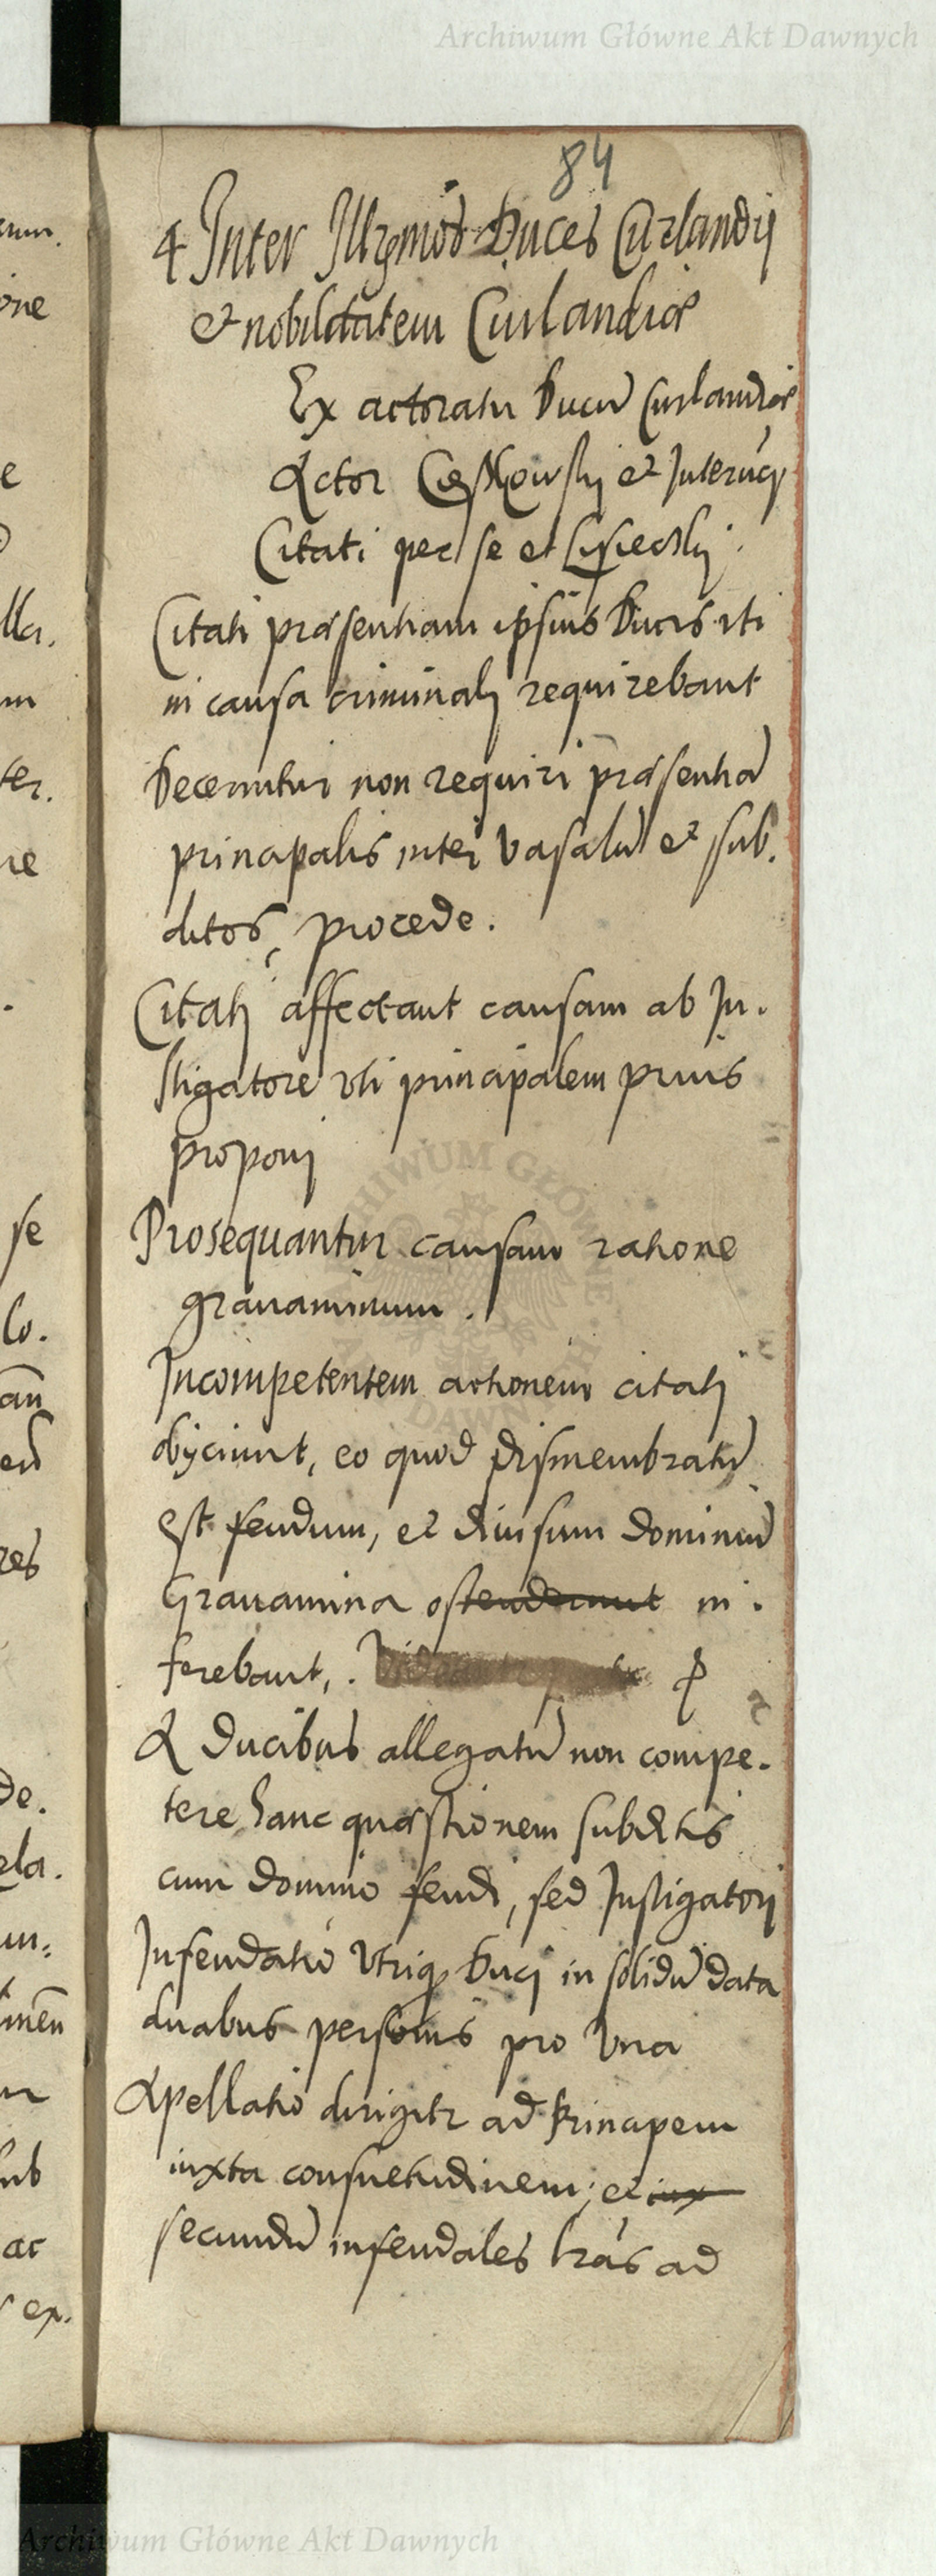 Archiwum Główne Akt Dawnych
84
4 Inter Illrmos Duces Curlandij
et nobilitatem Curlandiæ
Ex actoratu Ducu Curlandiæ
Actor et
Citati per se et
Citati præsentiam ipsius Ducis uti
in causa criminalj requirebant
Decernitur non requiri præsentia
principalis inter vasalu et sub.
ditos, procede.
Citatj affectant causam ab In.
stigatore uti principalem prius
proponj
Prosequantur causam ratione
grauaminum.
Incompetentem actionem citatj
obijciunt, eo quod dismembratu
est feudum, et diuisum dominiu
Grauamina ostenderunt in.
ferebant,.
A Ducibus allegatu non compe.
tere hanc quæstionem subditis
cum domino feudi, sed Instigatorj
Infeudatio utriq Ducj in solidu data
duabus personis pro una
Apellatio dirigitr ad Principem
iuxta consuetudinem; et iux
secundu infeudales lras ad
Archiwum Główne Akt Dawnych